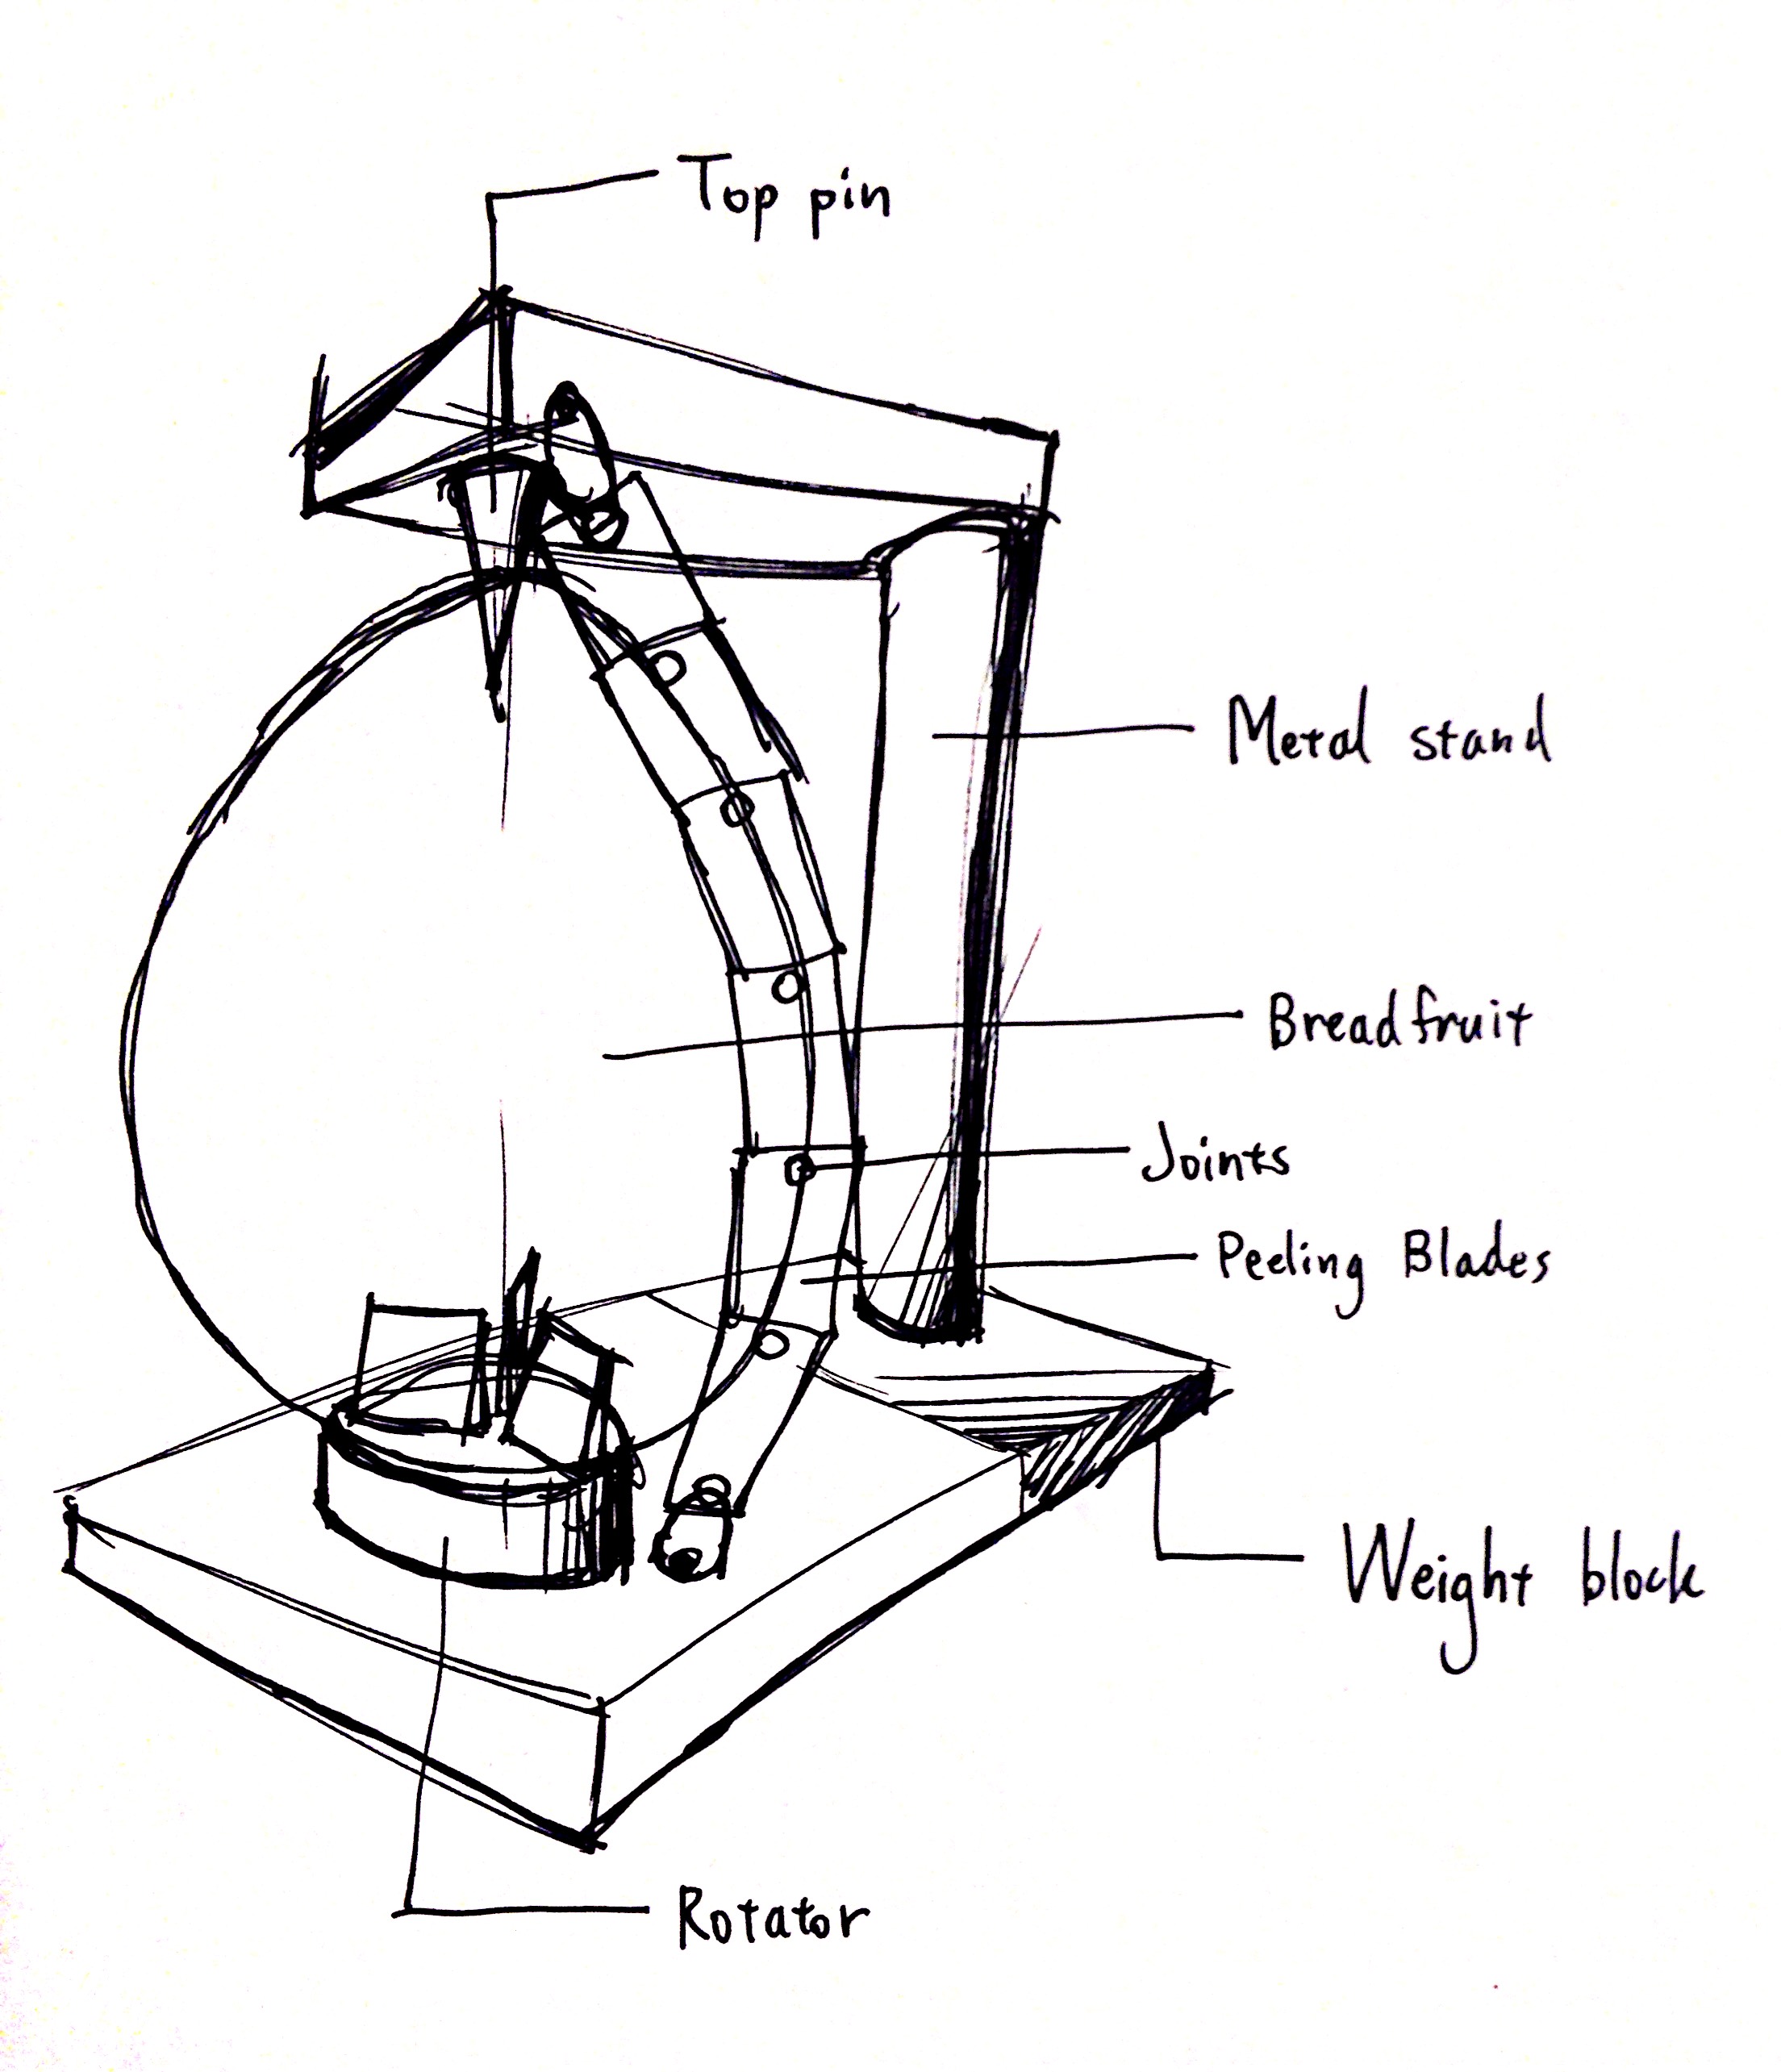 Top pin
Metal stand
Breadfruit
Joints
Peeling Blades
Weight block
Rotator